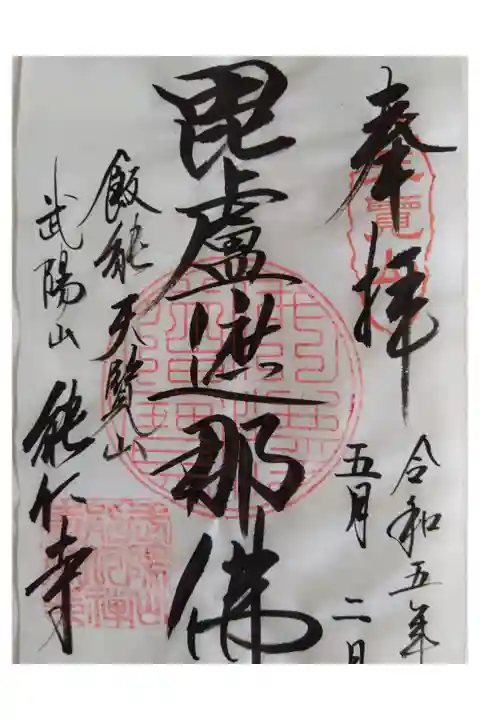 奉拝
令和五年
五月二日
毘盧遮那佛
飯能天覧山
武陽山
能仁寺